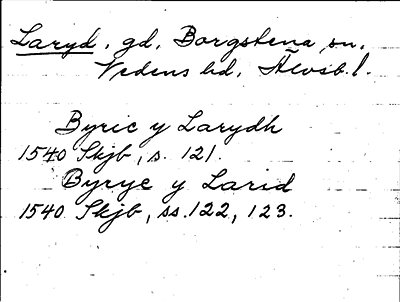 Laryd, gd, Borgstena sn,
Vedens hd, Älvsb. l.
Byric y Larydh
1540 Skjb, s. 121.
Byrye y Larid
1540 Skjb, ss. 122, 123.